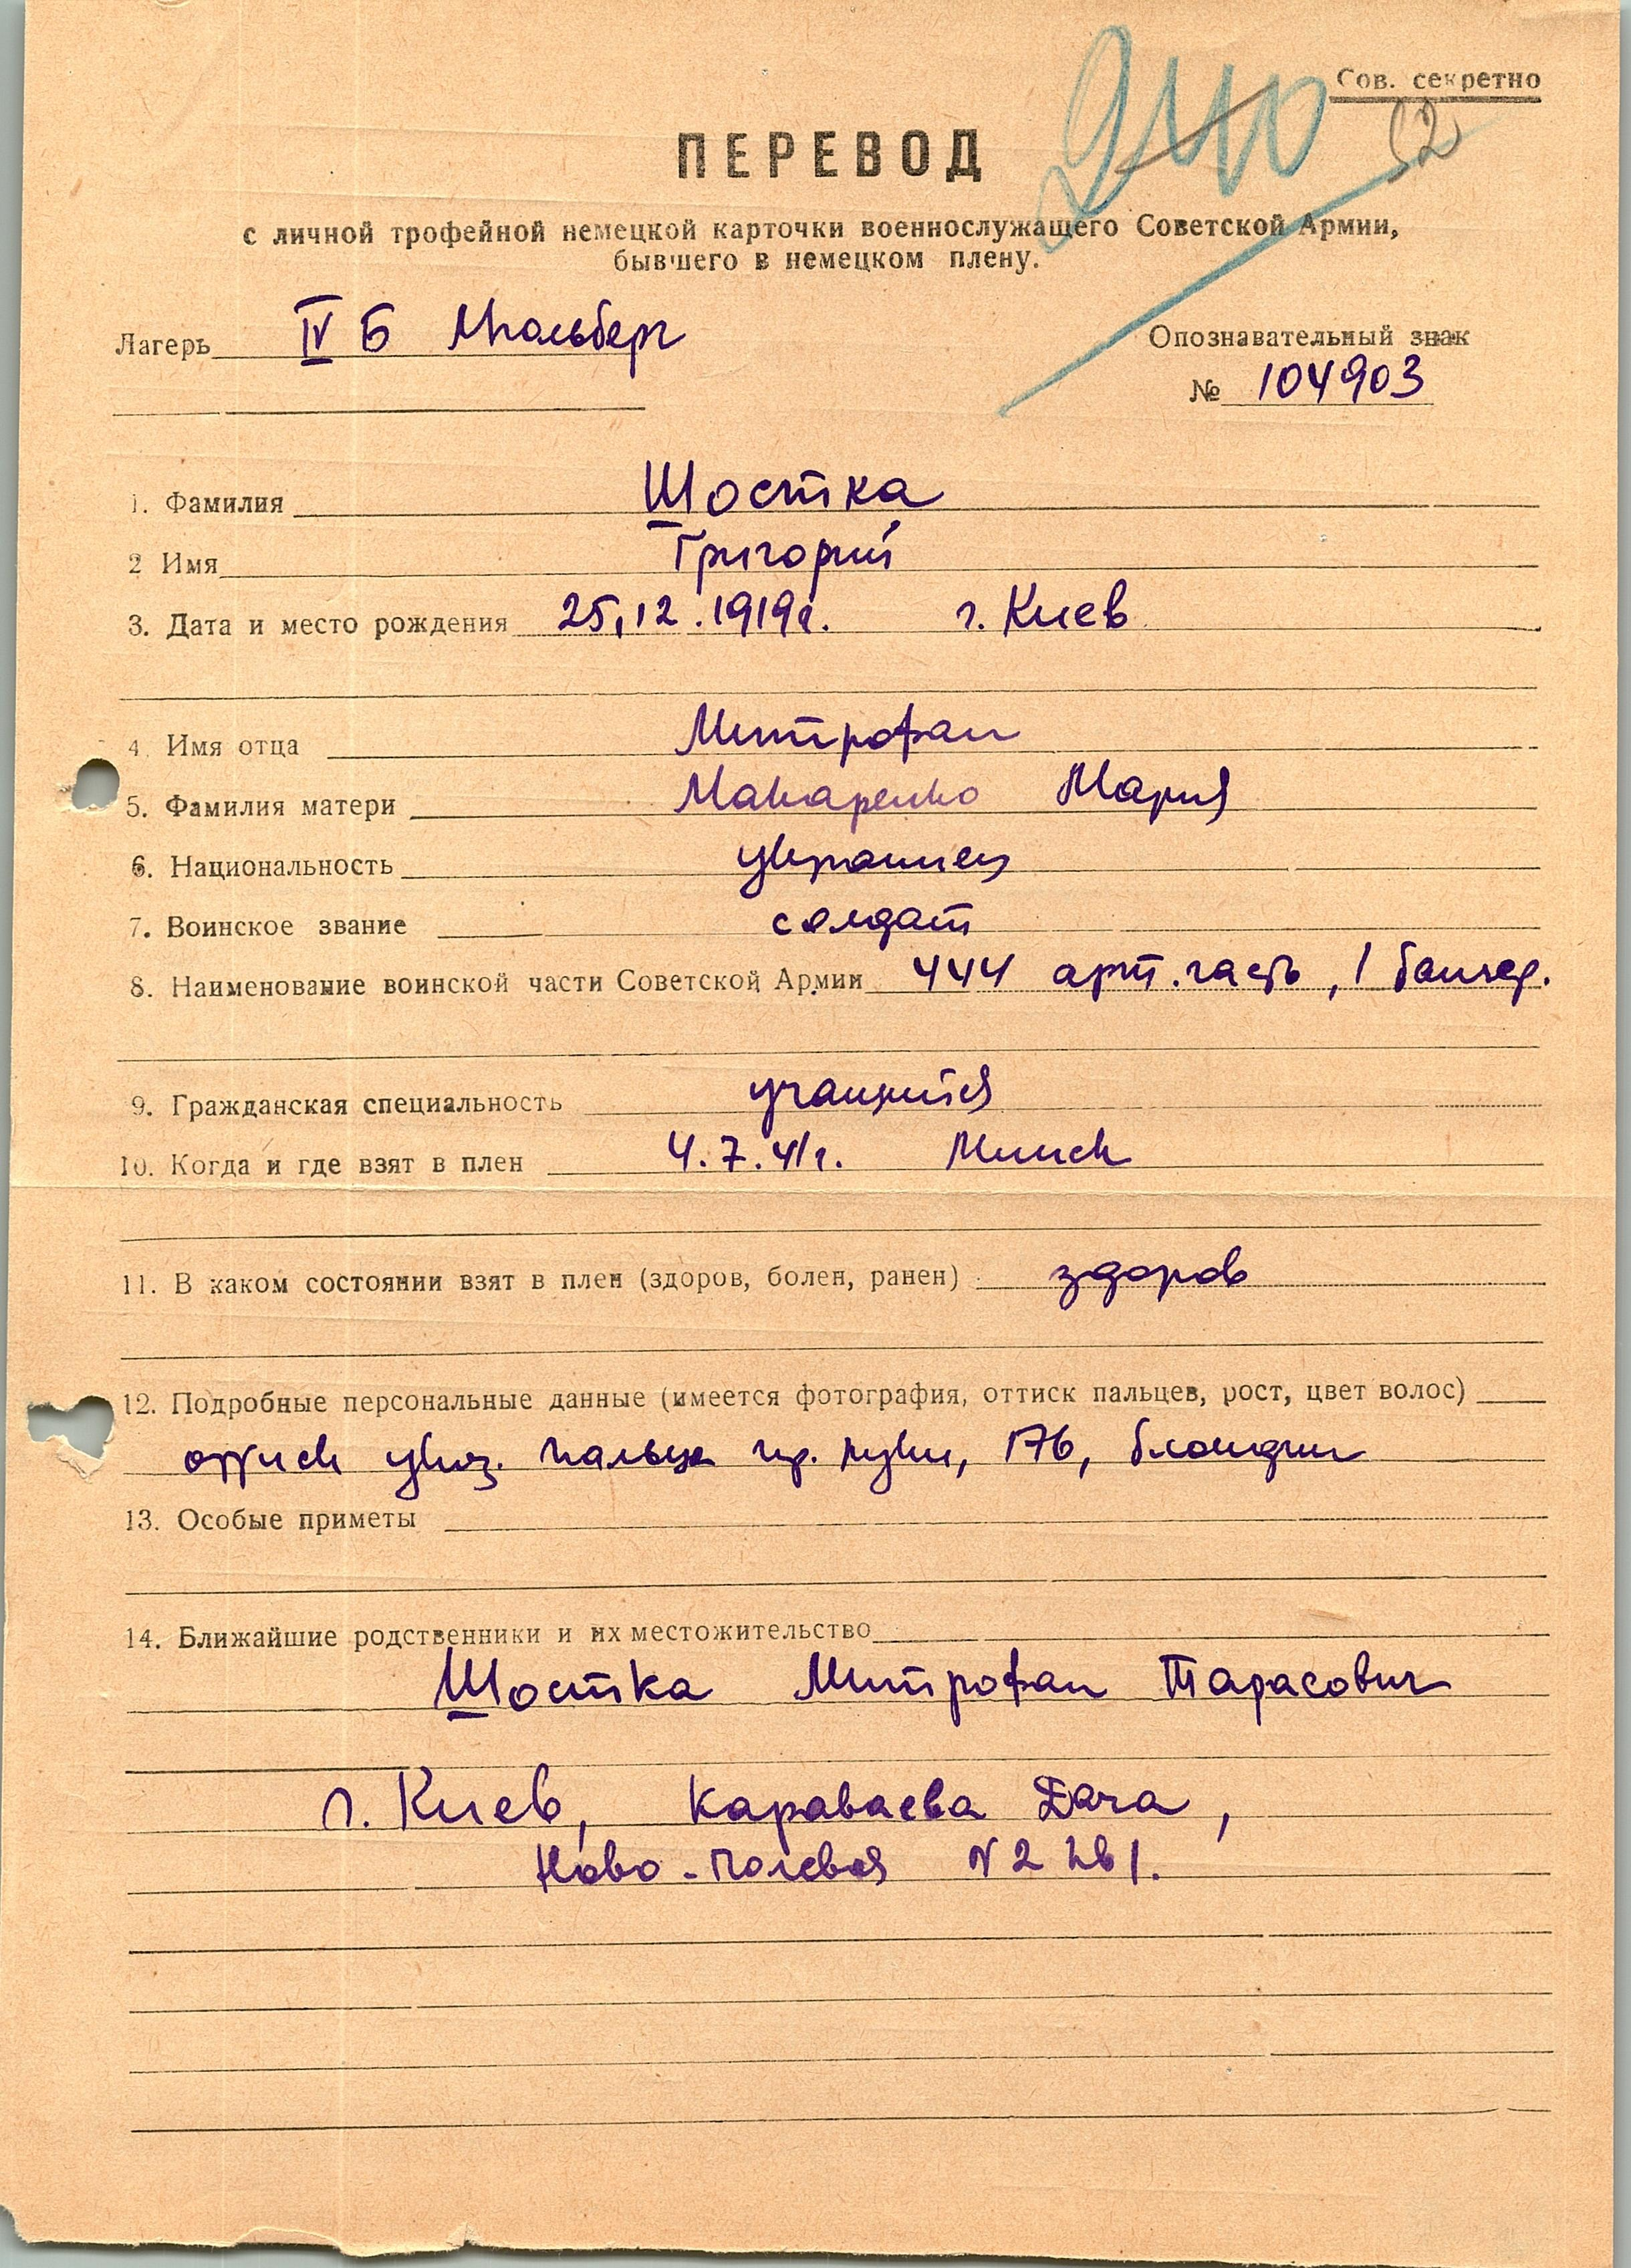 Сов. секретно
240
52
ПЕРЕВОД
с личной трофейной немецкой карточки военнослужащего Советской Армии,
бывшего в немецком плену.
Лагерь IV Б Мюльберг
Опознавательный знак
№ 104903
1. Фамилия Шостка
2 Имя Григорий
3. Дата и место рождения 25.12.1919г. г. Киев
4. Имя отца Митрофан
5. Фамилия матери Макаренко Мария
6. Национальность украинец
7. Воинское звание солдат
8. Наименование воинской части Советской Армии 444 арт. часть, 1 батаер.
9. Гражданская специальность учащийся
10. Когда и где взят в плен 4.7.41г. Минск
11. В каком состоянии взят в плен (здоров, болен, ранен) здоров
12. Подробные персональные данные (имеется фотография, оттиск пальцев, рост, цвет волос)
оттиск указ. пальца пр. руки, 176, блондин
13. Особые приметы
14. Ближайшие родственники и их местожительство
Шостка Митрофан Тарасович
г. Киев, Караваева Дача,
Ново-Полевая N 2 кв 1.